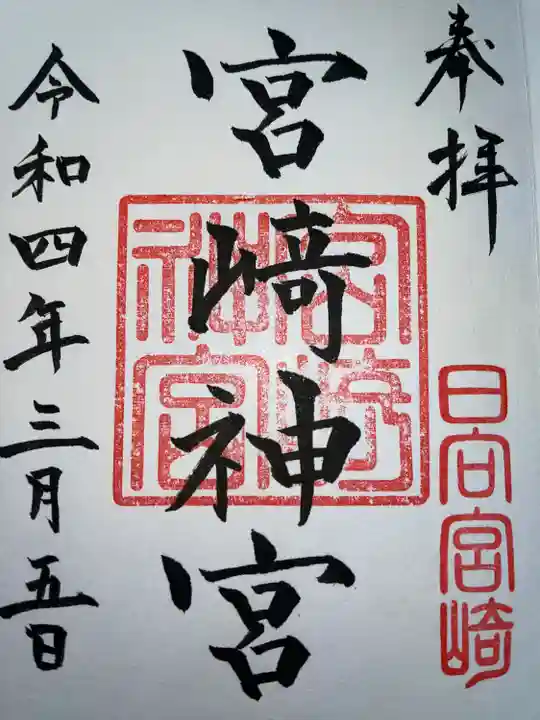 奉拝
日向宮崎
宮崎神宮
宮崎神宮
令和四年三月五日